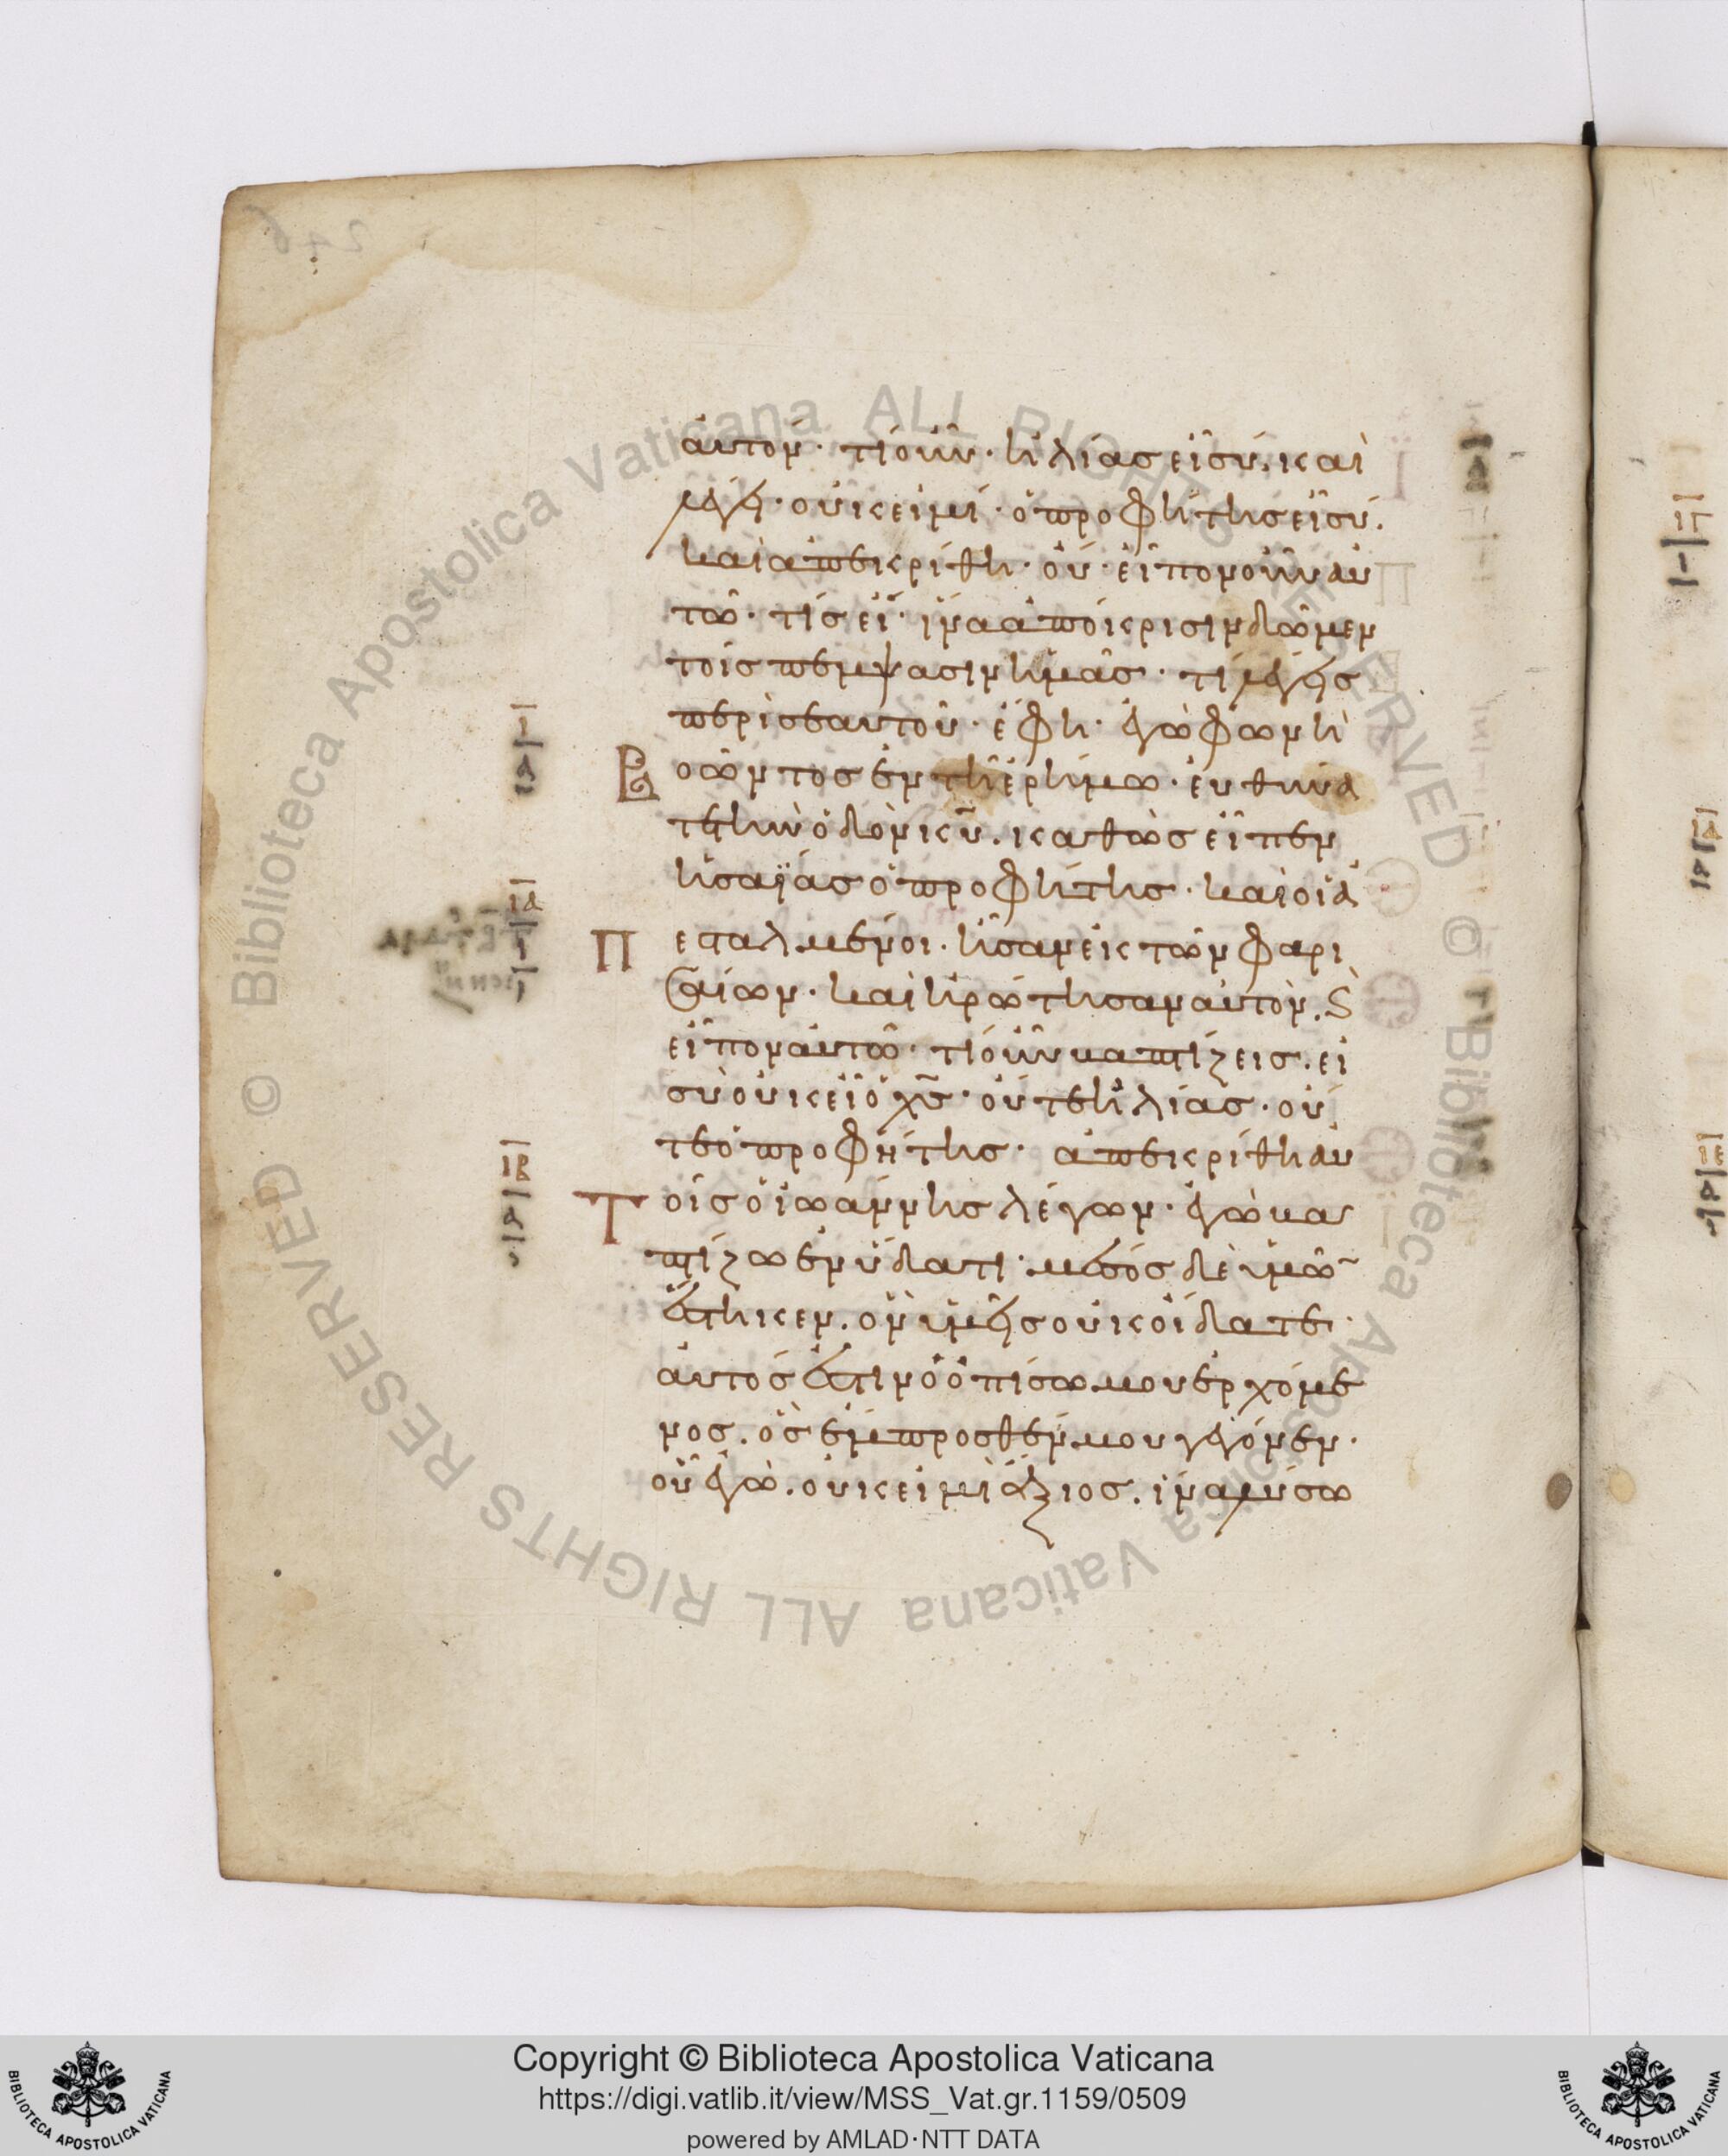 αὐτόν· τί οὖν· ἠλίας εἶ σύ. καὶ
λέγει· οὐκ εἰμί· ὁ προφήτης εἶ σύ.
καὶ ἀπεκρίθη· οὔ· εἶπον οὖν αὐ
τῶ· τίς εἶ· ἵνα ἀπόκρισιν δῶμεν
τοῖς πέμψασιν ἡμᾶς· τί λέγεις
περὶ σεαυτοῦ· ἔφη· ἐγὼ φωνὴ
Βοῶντος ἐν τῆ ἐρήμω· εὐθύνα
τε τὴν ὁδὸν κ̅υ̅. καθὼς εἶπεν
ἠσαΐας ὁ προφήτης· καὶ οἱ ἀ
Πεσταλμένοι· ἦσαν ἐκ τῶν φαρι
σαίων· καὶ ἠρώτησαν αὐτόν. ϗ
εἶπον αὐτῶ· τί οὖν βαπτίζεις. εἰ
σὺ οὐκ εἶ ὁ χ̅ς̅· οὔτε ἠλίας· οὔ
τε ὁ προφήτης· ἀπεκρίθη αὐ
Τοῖς ὁ ἰωάννης λέγων· ἐγὼ βα
πτίζω ἐν ὕδατι· μέσος δὲ ὑμῶ̅
ἕστηκεν. ὃν ὑμεῖς οὐκ οἴδατε·
αὐτός ἐστιν ὁ ὀπίσω μου ἐρχόμε
νος. ὃς ἔμπροσθέν μου γέγονεν·
οὗ ἐγὼ. οὐκ εἰμὶ ἄξιος. ἵνα λύσω
ι̅α̅
ι̅β̅
Copyright © Biblioteca Apostolica Vaticana
https://digi.vatlib.it/view/MSS_Vat.gr.1159/0509
powered by AMLAD·NTT DATA
BIBLIOTECA APOSTOLICA VATICANA
BIBLIOTECA APOSTOLICA VATICANA
© Biblioteca Apostolica Vaticana ALL RIGHTS RESERVED © Biblioteca Apostolica Vaticana ALL RIGHTS RESERVED